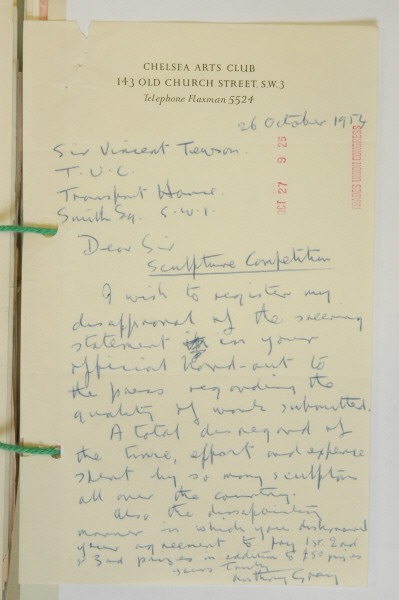 CHELSEA ARTS CLUB
143 OLD CHURCH STREET, S.W.3
Telephone Flaxman 5524
26 October 1954
OCT 27 9 25
TRADES UNION CONGRESS
Sir Vincent Tewson.
T.U.C.
Transport House.
Smith Sq. S.W.1.
Dear Sir
Sculpture Competition
I wish to register my
disapproval of the sneering
statement in your
official Hand-out to
the press regarding the
quality of work submitted.
A total disregard of
the time, effort and expense
spent by so many sculptors
all over the country.
Also the disappointing
manner in which you dishonoured
your agreement to pay 1st. 2nd
& 3rd prizes in addition to £50 prizes
yours truly
Anthony Gray